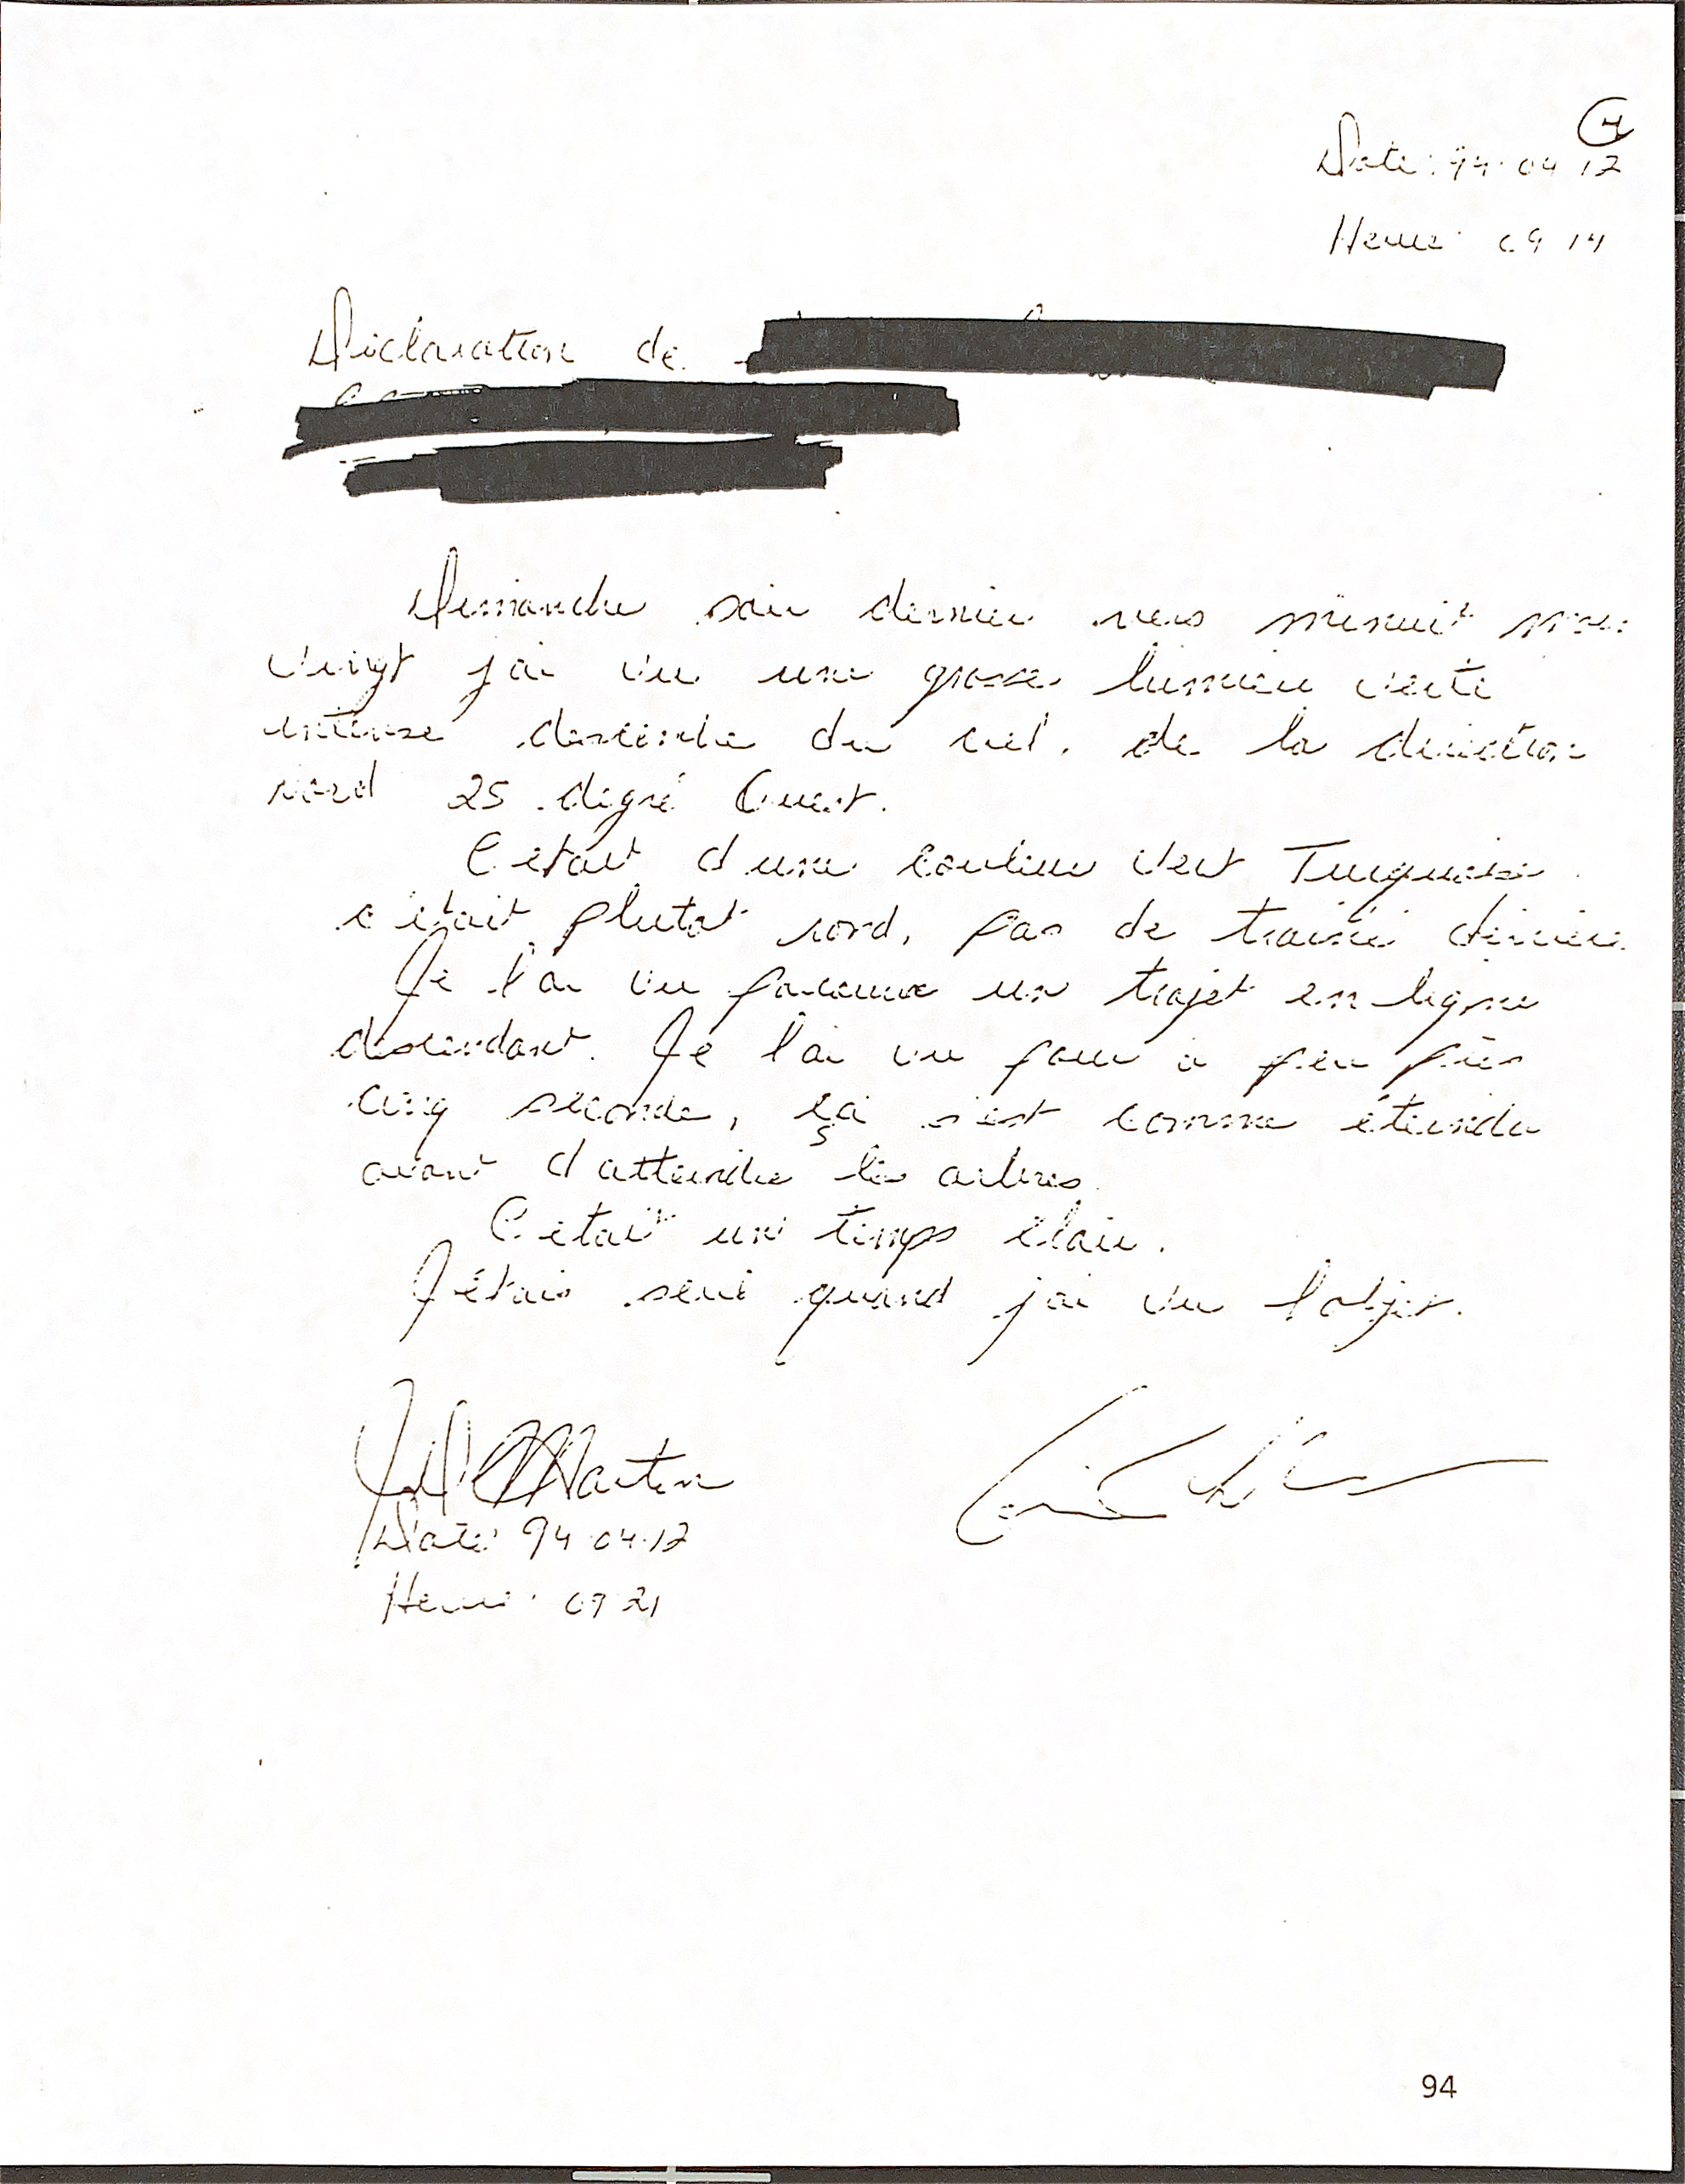 4
Date: 94.04.12
Heure: 09 14
Déclaration de
Dimanche soir dernier vers minuit
vingt j'ai vu une grosse lumière verte
intense descendre du ciel, de la direction
nord 25 degré Ouest.
C'était d'une couleur vert Turquoise.
c'était plutot rond, pas de trainée derrière.
Je l'ai vu parcourir un trajet en ligne
descendant. Je l'ai vu pour à peu près
cinq seconde, ça s'est comme étendu
avant d'atteindre les arbres.
C'était un temps clair.
J'étais seul quand j'ai vu l'objet.
Martin
Date: 94.04.12
Heure: 09 21
94